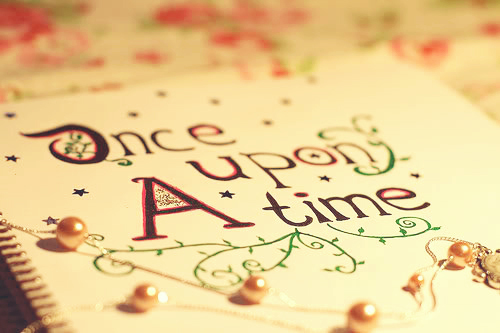 Once
upon
A time